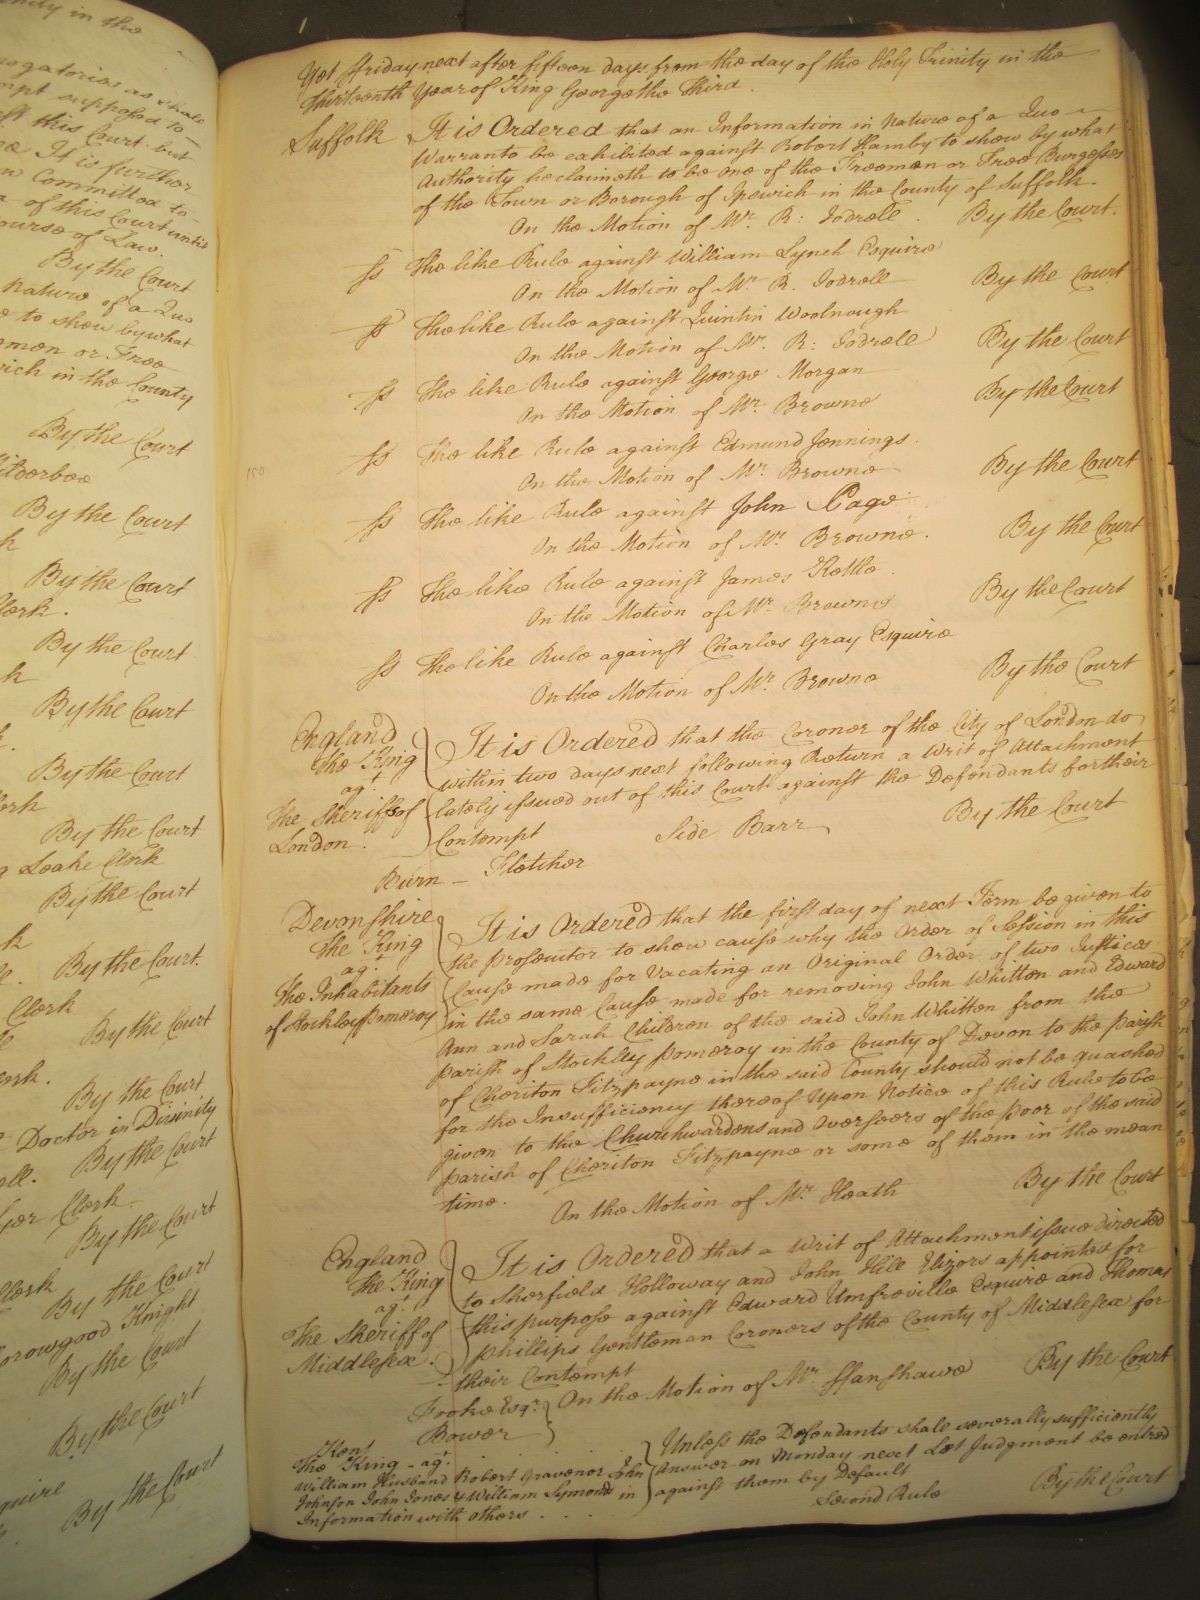 nity in the
ogatories as shall
mpt supposed to
this Court but
It is further
Committed to
of this Court until
ourse of Law.
By the Court
nature of a Quo
to show by what
emen or Free
wich in the County
By the Court
By the Court
By the Court
Clerk.
By the Court
By the Court
By the Court
By the Court
Leake Clerk
By the Court
By the Court.
Clerk
By the Court
By the Court
Doctor in Divinity
By the Court
Clerk
By the Court
Clerk By the Court
Knight
By the Court
By the Court
quire
By the Court
Yet ffriday next after fifteen days from the day of the Holy Trinity in the
Thirteenth Year of King George the Third.
Suffolk It is Ordered that an Information in nature of a Quo
Warranto be exhibited against Robert Hamby to show by what
Authority he claimeth to be one of the Freemen or Free Burgesses
of the Town or Borough of Ipswich in the County of Suffolk.
On the Motion of Mr. R: Jodrell. By the Court.
ss The like Rule against William Lynch Esquire
On the Motion of Mr R. Jodrell By the Court
ss The like Rule against Quintin Woolnough
On the Motion of Mr. R: Jodrell By the Court
ss The like Rule against George Morgan
On the Motion of Mr. Browne By the Court
ss The like Rule against Edmund Jennings.
On the Motion of Mr. Browne By the Court
ss The like Rule against John Page
On the Motion of Mr. Browne. By the Court
ss The like Rule against James Kettle.
On the Motion of Mr. Browne By the Court
ss The like Rule against Charles Gray Esquire
On the Motion of Mr. Browne By the Court
England
The King
agt.
The Sheriffs of
London.
It is Ordered that the Coroner of the City of London do
within two days next following Return a Writ of Attachment
lately issued out of this Court against the Defendants for their
Contempt Side Barr By the Court
Burn - Fletcher
Devonshire
The King
agt.
The Inhabitants
of Stockley Pomeroy
It is Ordered that the first day of next Term be given to
the Prosecutor to show cause why the Order of Session in this
Cause made for Vacating an Original Order of two Justices
in the same Cause made for removing John Whitten and Edward
Ann and Sarah Children of the said John Whitten from the
parish of Stockley pomeroy in the County of Devon to the parish
of Cheriton Fitzpayne in the said County should not be quashed
for the Insufficiency thereof Upon Notice of this Rule to be
given to the Churchwardens and Overseers of the poor of the said
parish of Cheriton Fitzpayne or some of them in the mean
time. On the Motion of Mr. Heath By the Court
England
The King
agt.
The Sheriff of
Middlesex.
It is Ordered that a Writ of Attachment issue directed
to Sherfield Holloway and John Hill Elizors appointed for
this purpose against Edward Umfreville Esquire and Thomas
Phillips Gentleman Coroners of the County of Middlesex for
their Contempt
Fooke Esqr. On the Motion of Mr. ffanshawe By the Court
Bower
Kent
The King - agt.
William Husband Robert Gravenor John
Johnson John Jones & William Symonds in
Information with others . . .
Unless the Defendants shall severally sufficiently
Answer on Monday next Let Judgment be entred
against them by Default
Second Rule By the Court